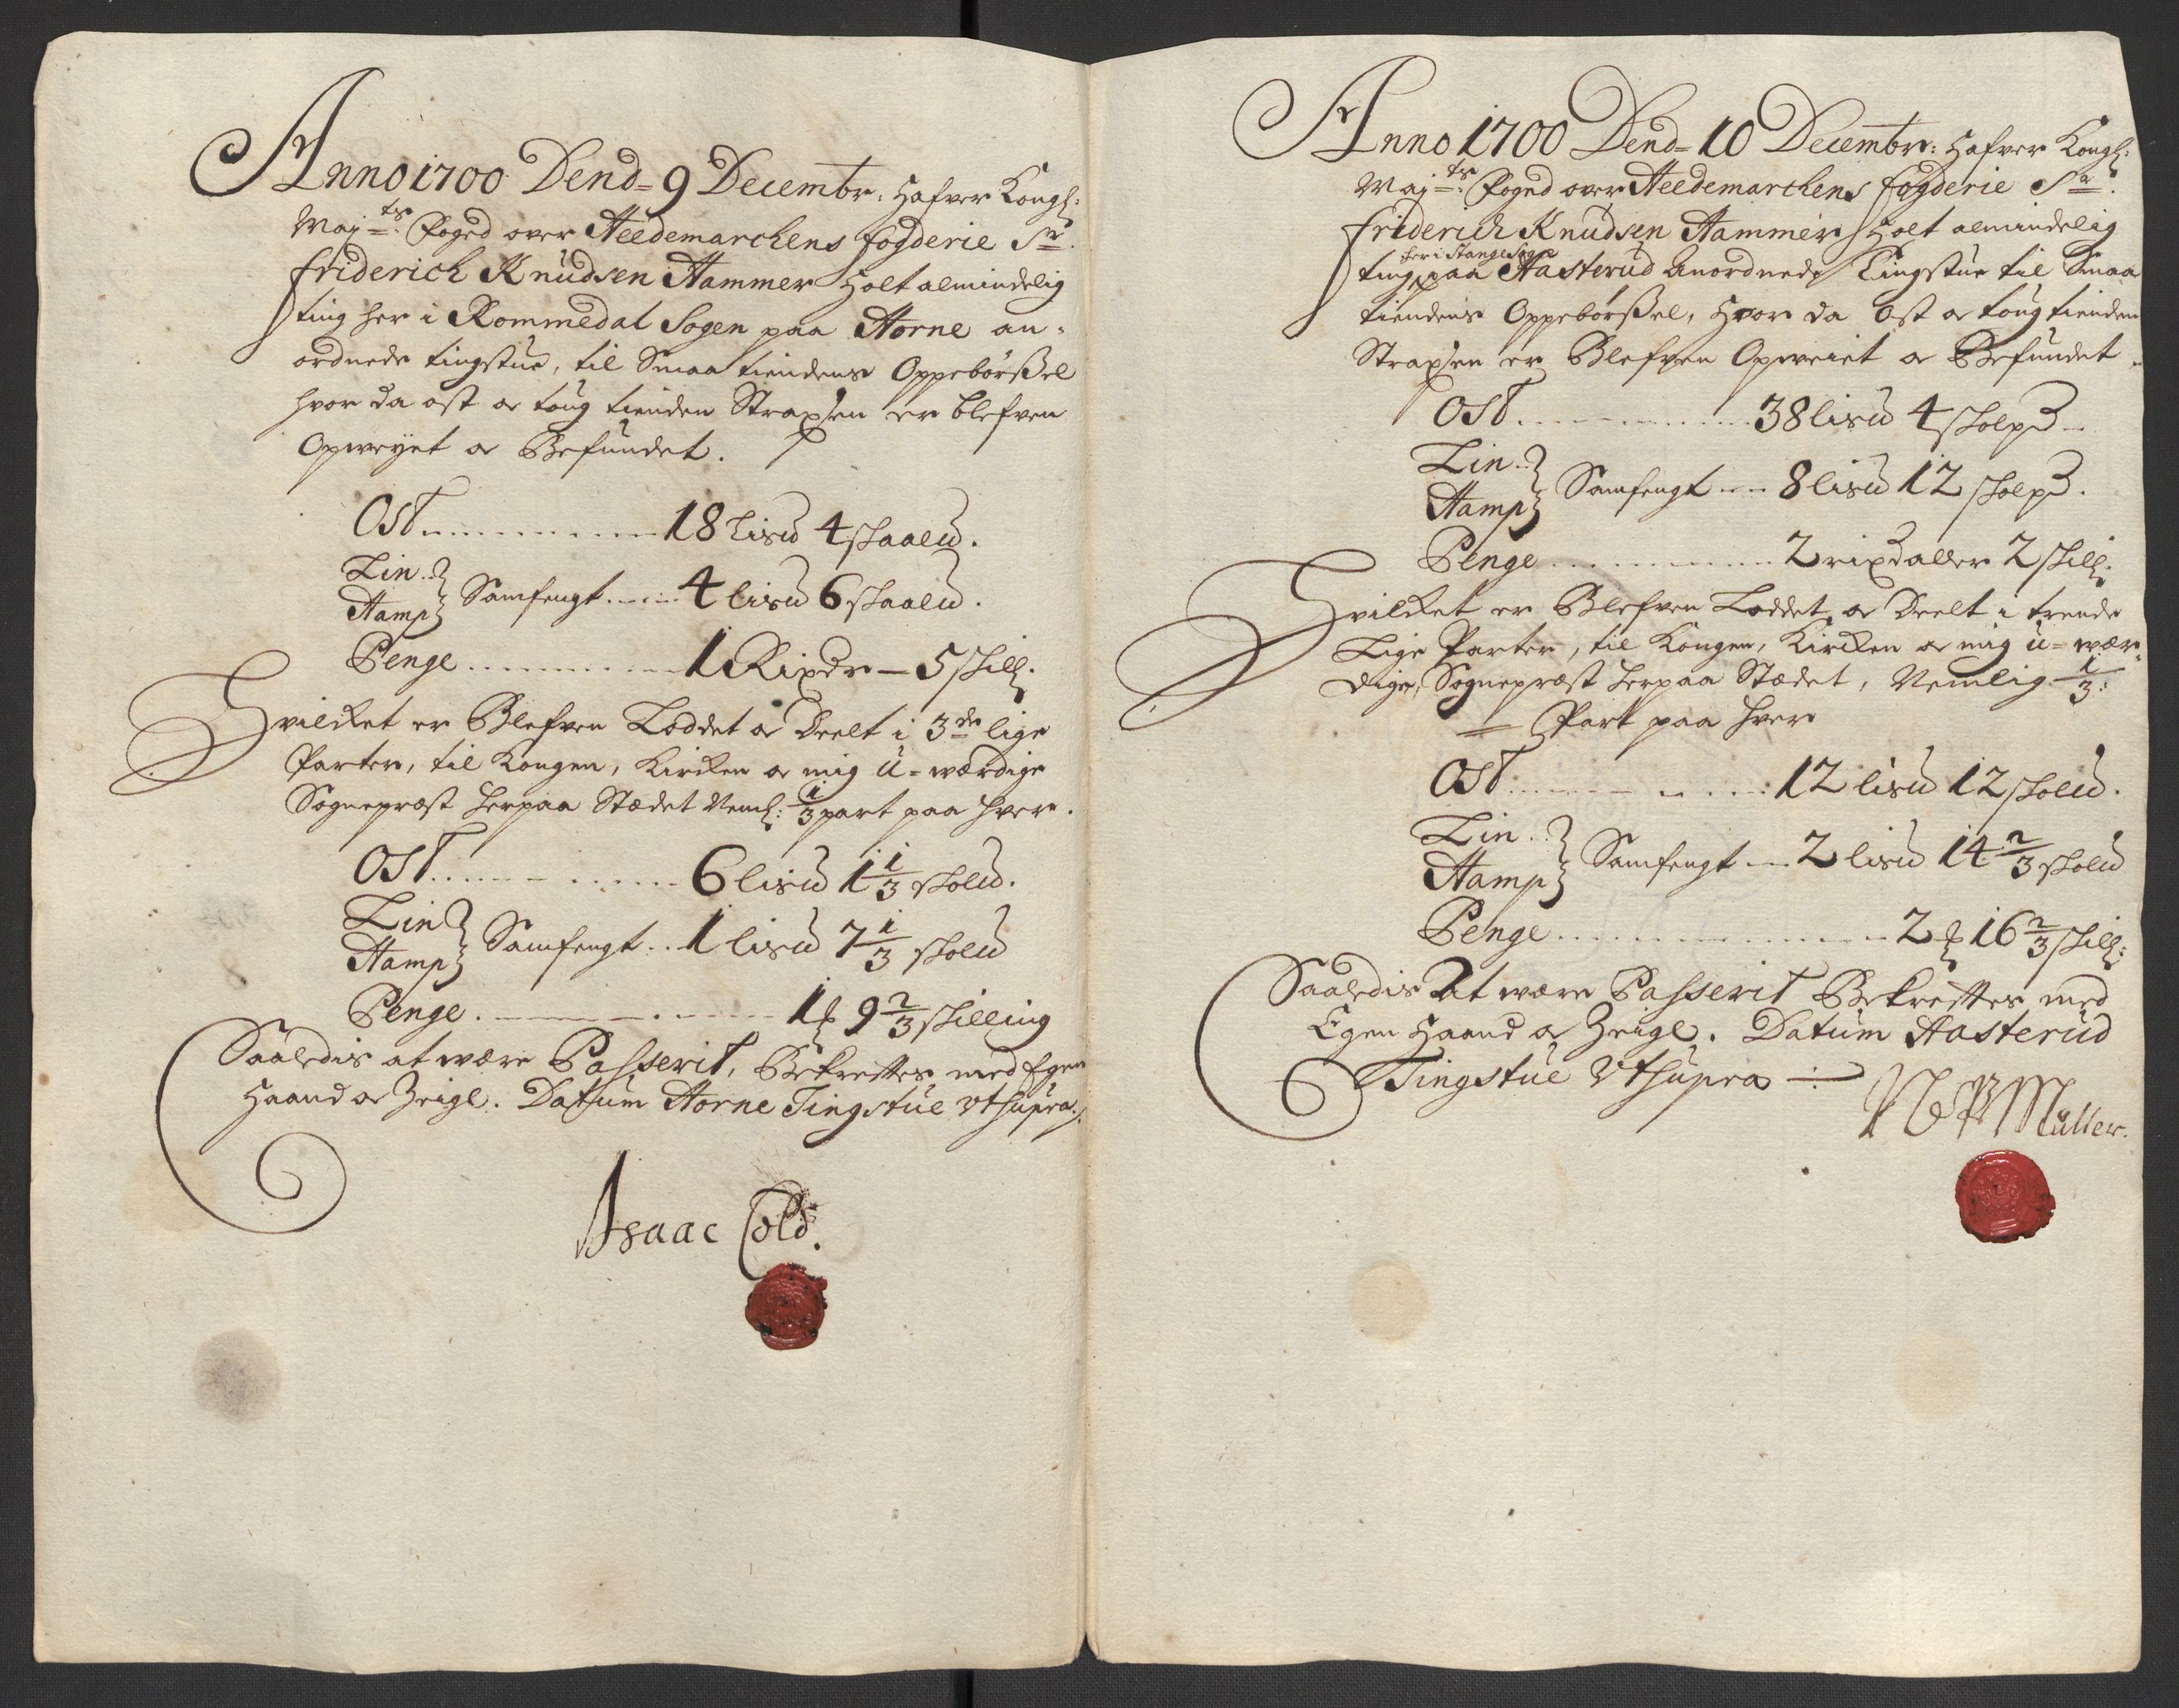 Anno 1700 Dend= 9 Decembr: Hafver Kongl:
Maj=ts: Foged over Heedemarchens fogderie Sr.
friderich Knudsen Hammer Holt almindelig
ting her i Rommedal Sogen paa Horne an-
ordnede tingstue, til Smaa tiendens Oppebørßel
hvor da ost oc toug tienden Strax sen er blefven
Opweyet oc Befundet.
Ost 18 Lisu 4 skaalu.
Lin
Hamp Samfengt 4 lisu 6 skaalu.
Penge 1 Rixdr – 5 skill:
Hvilcket er Blefven Loddet oc Deelt i 3de lige
Parter, til Kongen, Kircken oc mig U=wærdige
Sognepræst herpaa Stædet Neml: 1/3 part paa hver.
Ost 6 lisu 1 1/3 skolu.
Lin
Hamp Samfengt 1 lisu 7 1/3 skolu
Penge 1 ₰ 9 2/3 skilling
Saaledis at være Passerit, Bekreftes med Egen
Haand oc Zeigl. Datum Horne Tingstue Vtsupra.
Isaac Cold.
Anno 1700 Dend= 10 Decembr: Hafver Kongl:
Maj=ts: Foged over Heedemarchens fogderie Sr.
friderich Knudsen Hammer Holt almindelig
her i Stange Sogn
ting paa Aasterud Anordnede Tingstue til Smaa
tiendens Oppebørßel, Hvor da Ost oc toug tienden
Strax sen er Blefven Opweiet oc Befundet
Ost 38 lisu 4 skolpd
Lin
Hamp Samfengt 8 lisu 12 skolpd.
Penge 2 rixdaller 2 skill:
Hvilcket er Blefven Loddet oc Deelt i trende
Lige Parter, til Kongen, Kircken oc mig u=vær-
dige, Sognepræst herpaa Stædet, Nemlig 1/3:
Part paa hver
Ost 12 lisu 12 skolu.
Lin
Hamp Samfengt 2 lisu 14 2/3 skolu
Penge 2 ₰ 16 2/3 skill:
Saaledis At være Passerit Bekreftes med
Egen Haand oc Zeigl. Datum Aasterud
Tingstue Vtsupra
Müller.